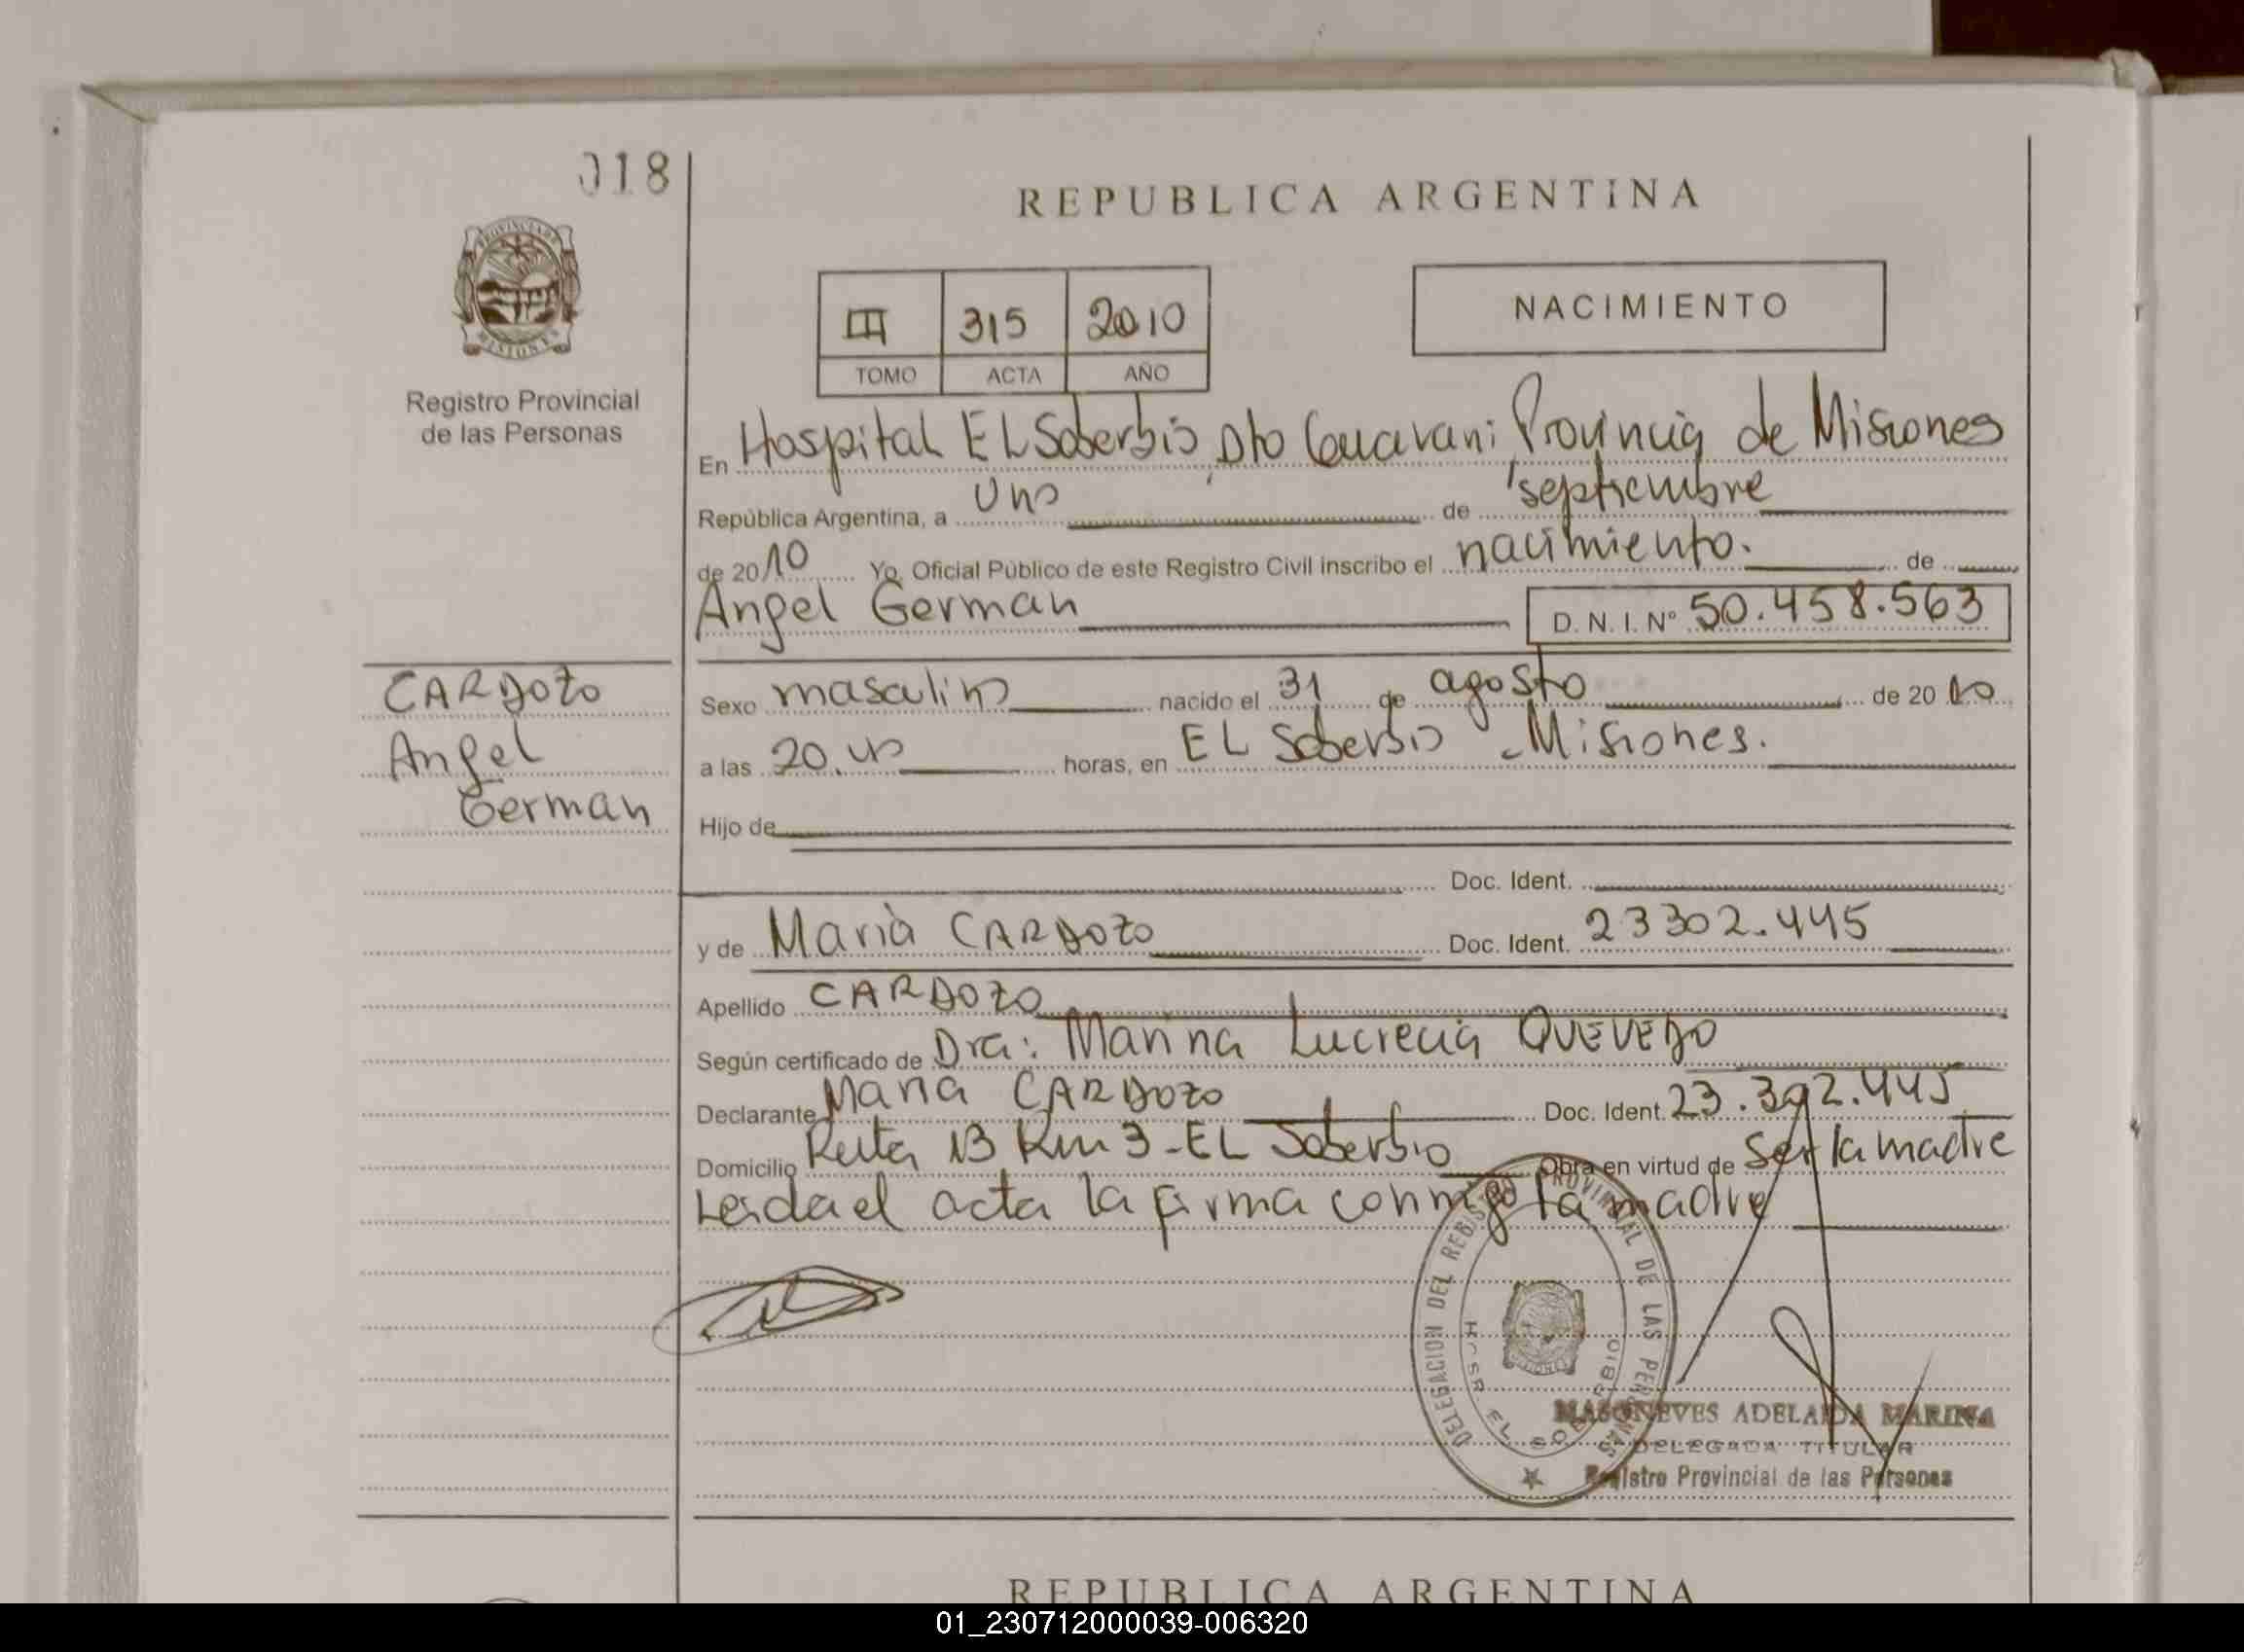 018
REPUBLICA ARGENTINA
PROVINCIA DE
MISIONES
Registro Provincial
de las Personas
III 315 2010
TOMO ACTA AÑO
NACIMIENTO
En Hospital EL Soberbio, Dto Guarani Provincia de Misiones
República Argentina, a uno de septiembre
de 2010 Yo, Oficial Público de este Registro Civil inscribo el nacimiento. de
Angel German D. N. I. Nº 50.458.563
CARDOZO
Angel
German
Sexo masculino nacido el 31 de agosto de 2010
a las 20. horas, en EL Soberbio - Misiones.
Hijo de
Doc. Ident.
y de Maria CARDOZO Doc. Ident. 23302.445
Apellido CARDOZO
Según certificado de Dra: Marina Lucrecia QUEVEDO
Declarante Maria CARDOZO Doc. Ident. 23.302.445
Domicilio Ruta 13 Km 3 - EL Soberbio Obra en virtud de ser la madre
Leida el acta la firma conmigo la madre
DELEGACION DEL REGISTRO PROVINCIAL DE LAS PERSONAS
EL SOBERBIO
ADELAIDA MARINA
DELEGADA TITULAR
Registro Provincial de las Personas
REPUBLICA ARGENTINA
01_230712000039-006320